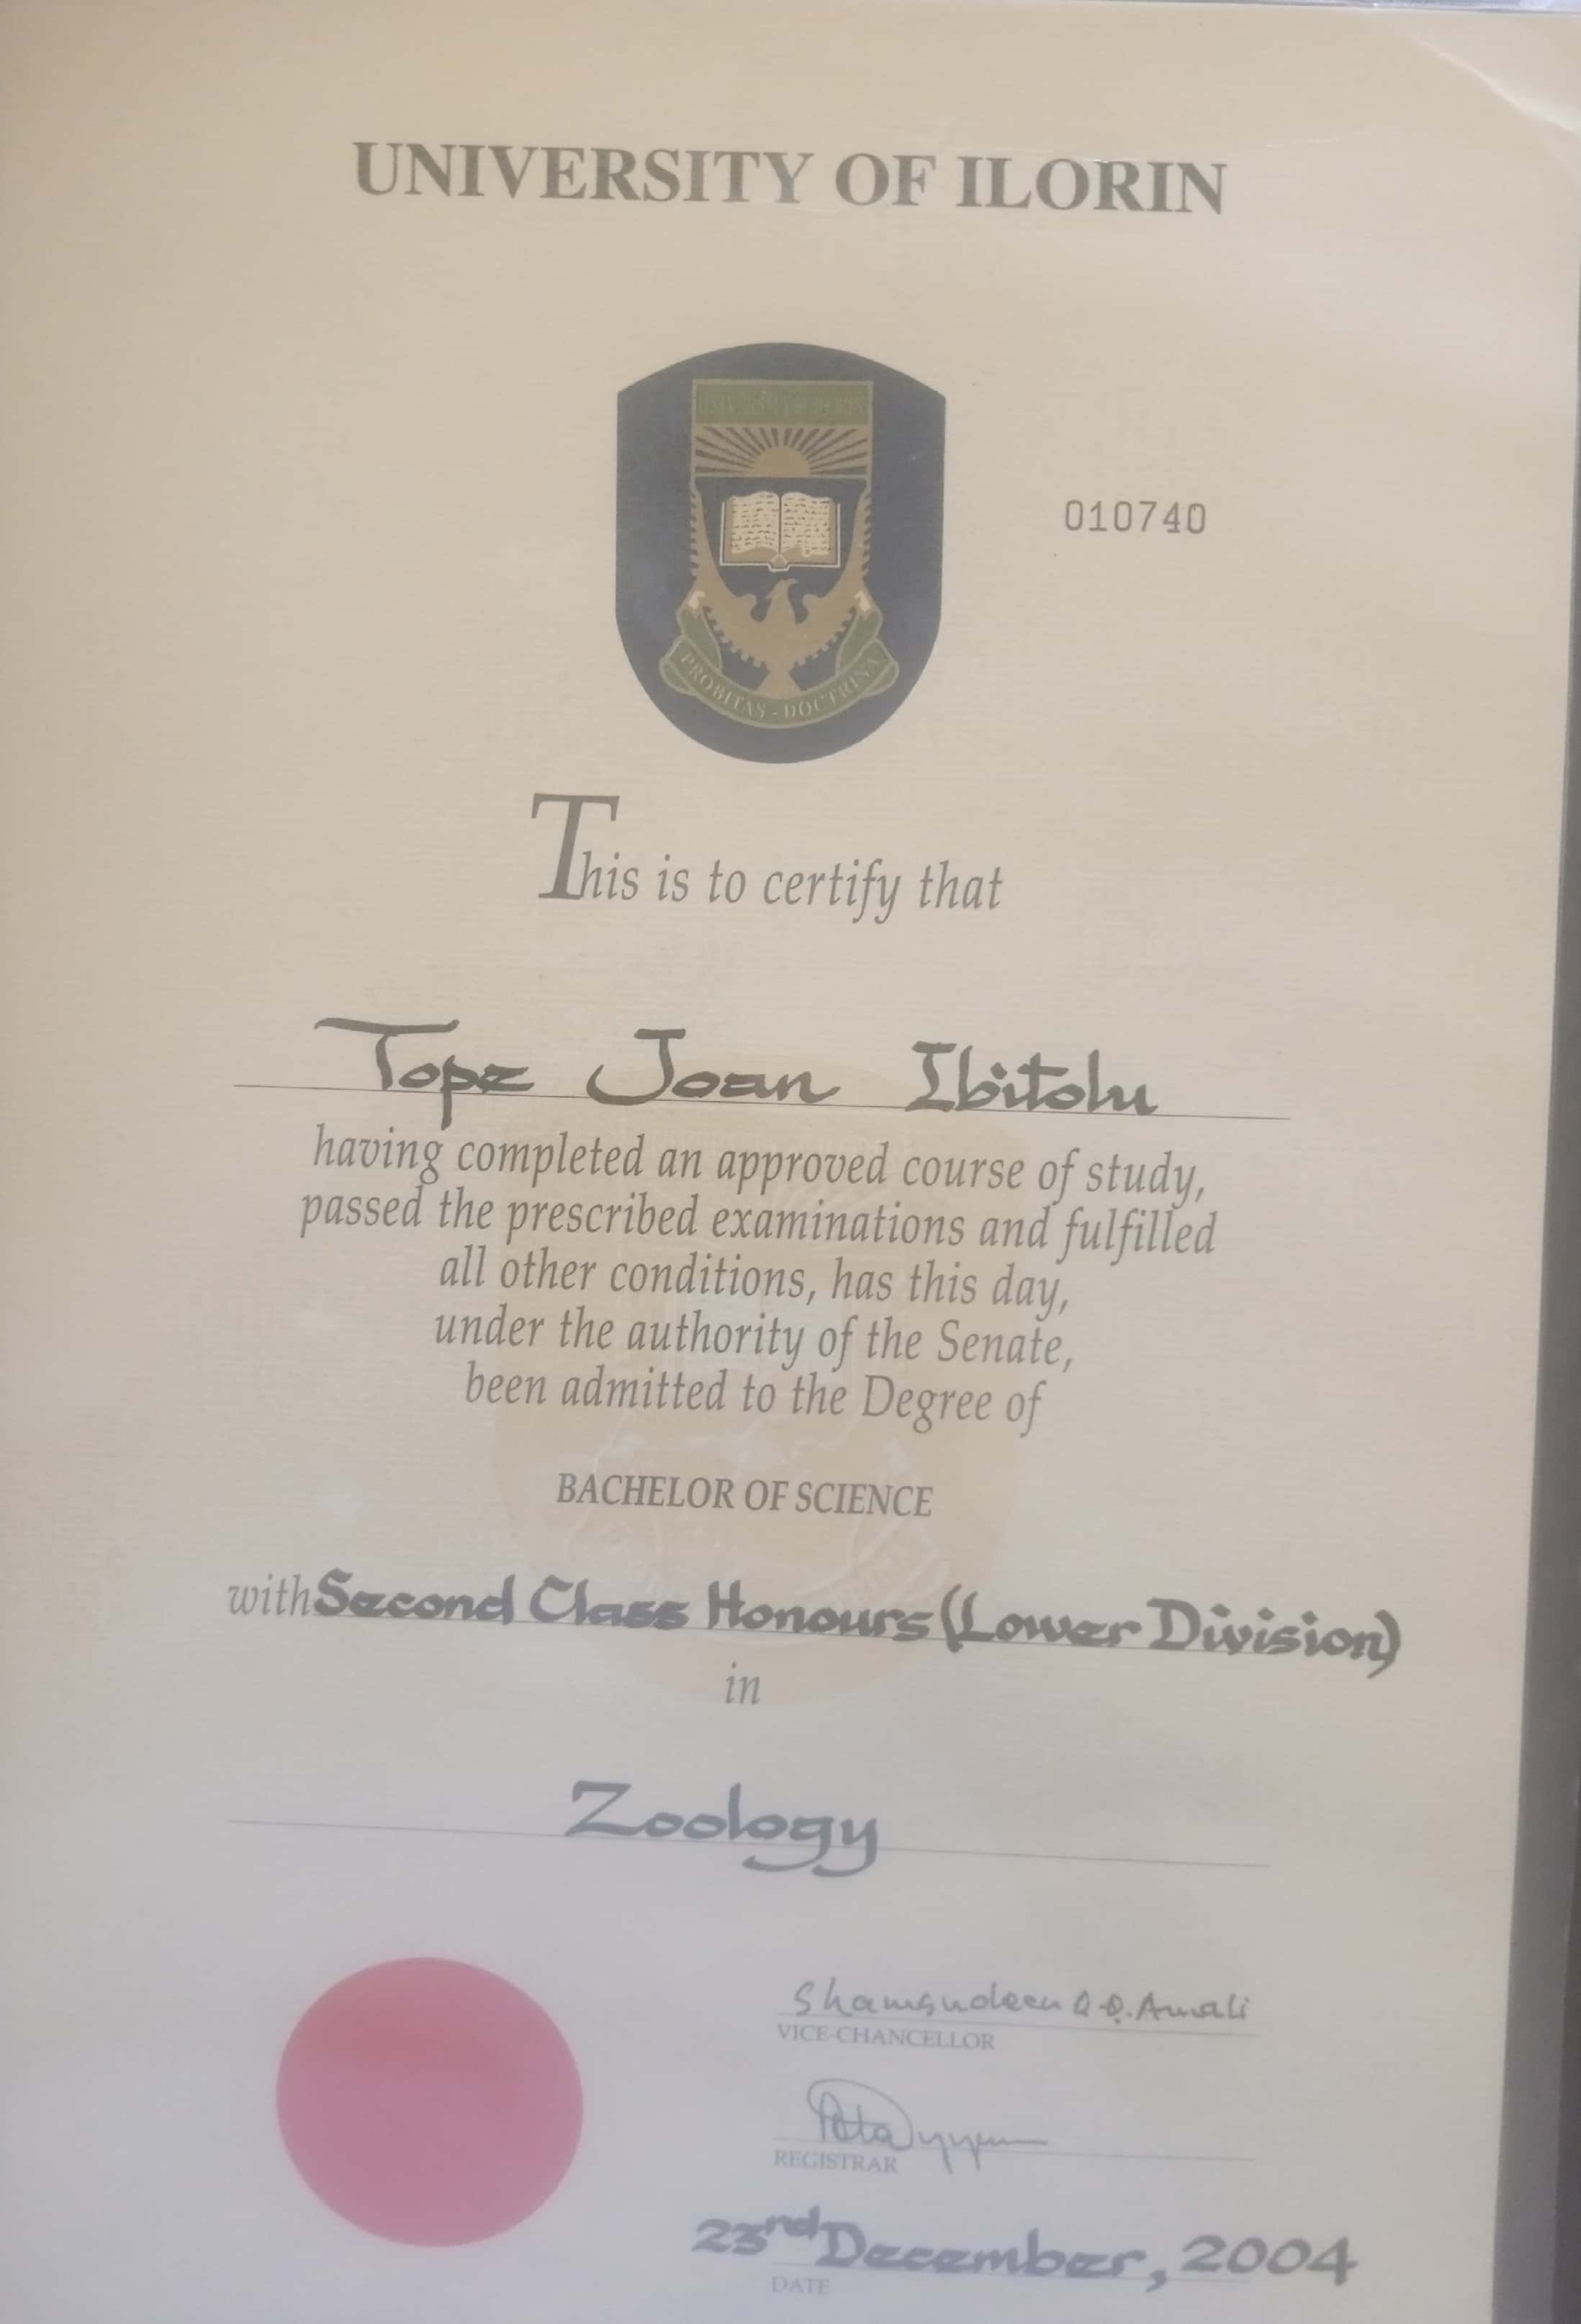 UNIVERSITY OF ILORIN
UNIVERSITY OF ILORIN
010740
PROBITAS - DOCTRINA
This is to certify that
Tope Joan Ibitolu
having completed an approved course of study,
passed the prescribed examinations and fulfilled
all other conditions, has this day,
under the authority of the Senate,
been admitted to the Degree of
BACHELOR OF SCIENCE
with Second Class Honours (Lower Division)
in
Zoology
Shamsudeen O.O. Amali
VICE-CHANCELLOR
REGISTRAR
23rd December, 2004
DATE